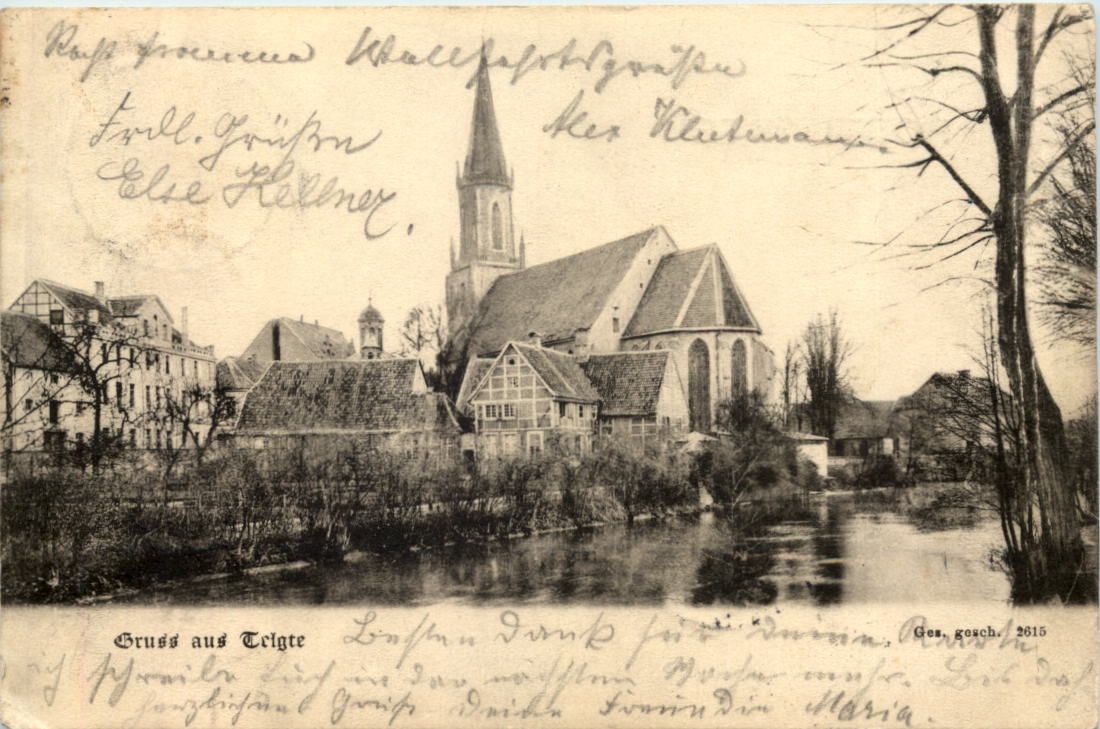 Recht fromme Wallfahrtsgrüße
Alex Klutemann.
Frdl. Grüßen
Else Kellner.
Gruss aus Telgte
Ges. gesch. 2615
Besten Dank für deine Karte
ich schreibe Euch in der nächsten Woche mehr. Bis dah
herzlichen Grüß Deine Freundin Maria.